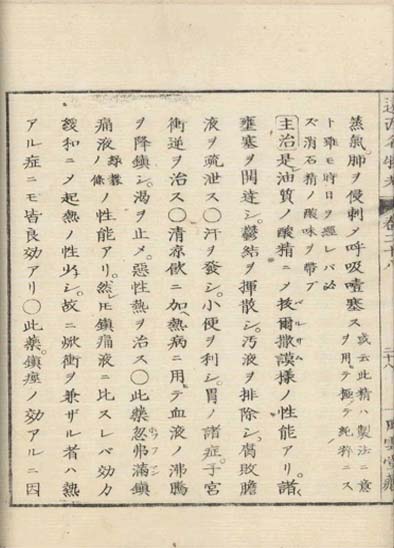 蒸氣肺ヲ侵刺メ呼吸噎塞ス
或云此精ハ製法ニ意
ヲ用テ極テ純粹ニス
ト雖モ時日ヲ經レバ必
ズ消石精ノ酸味ヲ帶ブ
主治是油質ノ酸精ニメ抜爾撒謨樣ノ性能アリ。諸
壅塞ヲ開達シ。鬱結ヲ揮散シ。汚液ヲ排除シ。腐敗膽
液ヲ疏泄ス〇汗ヲ發シ。小便ヲ利シ。胃ノ諸症。子宮
衝逆ヲ治ス〇清凉飲ニ加ヘ熱病ニ用テ血液ノ沸騰
ヲ降鎮シ。渇ヲ止メ。惡性熱ヲ治ス〇此藥忽弗滿鎮
痛液ノ條ノ性能アリ。然レモ鎮痛液ニ比スレバ効力
緩和ニメ起熱ノ性少シ。故ニ焮衝ヲ兼ザル者ハ熱
アル症ニモ皆良効アリ〇此藥。鎮痙ノ効アルニ因